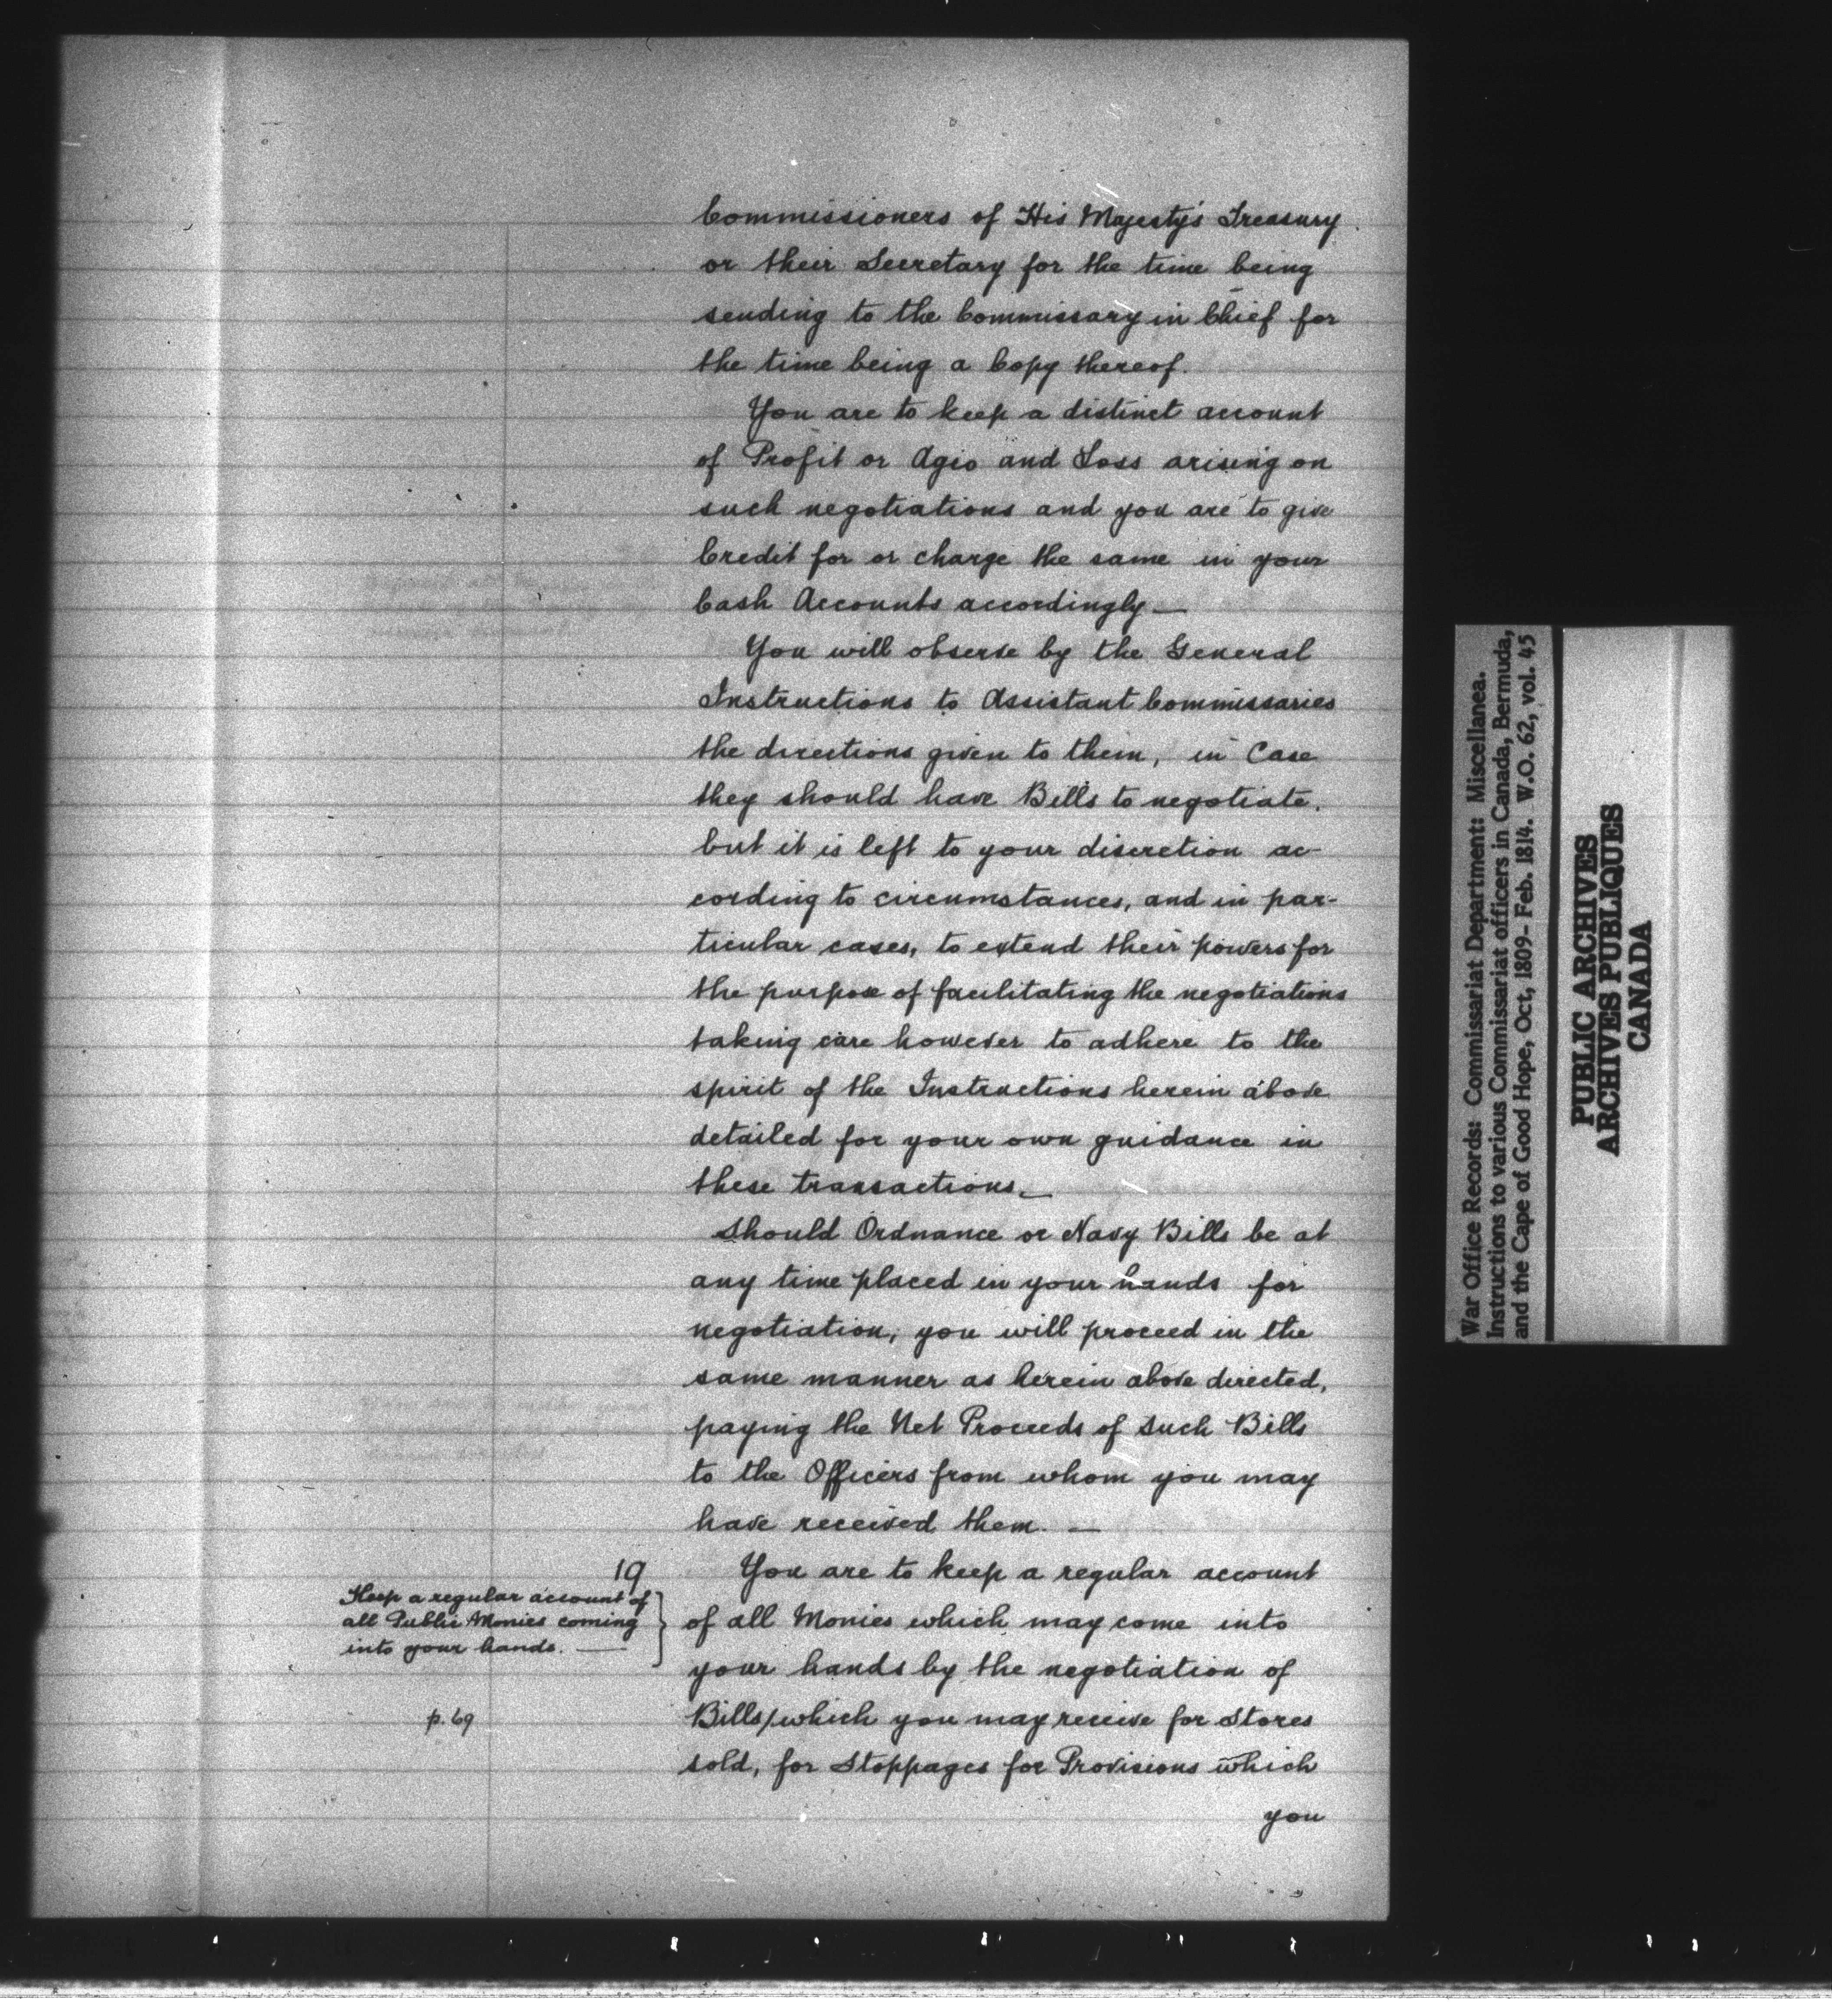 Commissioners of His Majesty's Treasury
or their Secretary for the time being
sending to the Commissary in Chief for
the time being a Copy thereof.
You are to keep a distinct account
of Profit or Agio and Loss arising on
such negotiations and you are to give
Credit for or charge the same in your
Cash Accounts accordingly —
You will observe by the General
Instructions to Assistant Commissaries
the directions given to them, in Case
they should have Bills to negotiate.
but it is left to your discretion ac-
cording to circumstances, and in par-
ticular cases, to extend their powers for
the purpose of facilitating the negotiations
taking care however to adhere to the
spirit of the Instructions herein above
detailed for your own guidance in
these transactions. —
Should Ordnance or Navy Bills be at
any time placed in your hands for
negotiation, you will proceed in the
same manner as herein above directed,
paying the Net Proceeds of such Bills
to the Officers from whom you may
have received them. —
19
Keep a regular account of
all Public Monies coming
into your hands. —
You are to keep a regular account
of all Monies which may come into
your hands by the negotiation of
p. 69
Bills/which you may receive for Stores
sold, for Stoppages for Provisions which
you
War Office Records: Commissariat Department: Miscellanea.
Instructions to various Commissariat officers in Canada, Bermuda,
and the Cape of Good Hope, Oct, 1809- Feb. 1814. W.O. 62, vol. 45
PUBLIC ARCHIVES
ARCHIVES PUBLIQUES
CANADA